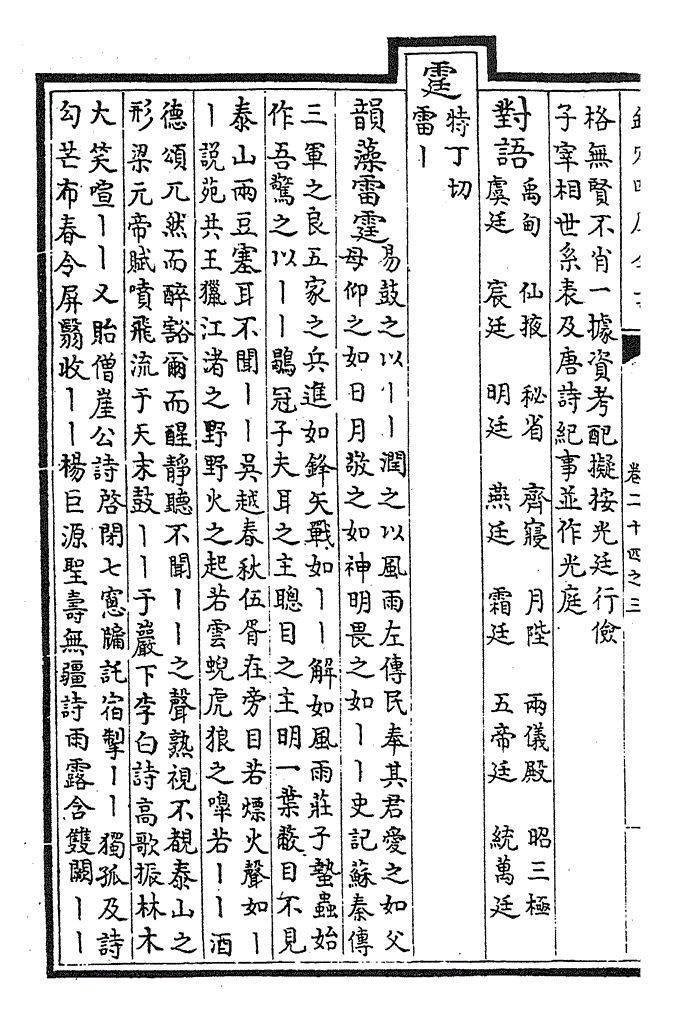 卷二十四之三
格無賢不肖一據資考配擬按光廷行儉
子宰相世系表及唐詩紀事並作光庭
對語
禹甸 仙掖 秘省 齊寢 月陛 兩儀殿 昭三極
虞廷 宸廷 明廷 燕廷 霜廷 五帝廷 統萬廷
霆
特丁切
雷丨
韻藻雷霆
易鼓之以丨丨潤之以風雨左傳民奉其君愛之如父
母仰之如日月敬之如神明畏之如丨丨史記蘇秦傳
三軍之良五家之兵進如鋒矢戰如丨丨解如風雨莊子蟄蟲始
作吾驚之以丨丨鶡冠子夫耳之主聰目之主明一葉蔽目不見
泰山兩豆塞耳不聞丨丨吳越春秋伍胥在旁目若熛火聲如丨
丨說苑共王獵江渚之野野火之起若雲蜺虎狼之嘷若丨丨酒
德頌兀然而醉豁爾而醒靜聽不聞丨丨之聲熟視不覩泰山之
形梁元帝賦噴飛流于天末鼓丨丨于巖下李白詩高歌振林木
大笑喧丨丨又貽僧崖公詩啓閉七窻牖託宿掣丨丨獨孤及詩
勾芒布春令屏翳收丨丨楊巨源聖壽無疆詩雨露含雙闕丨丨